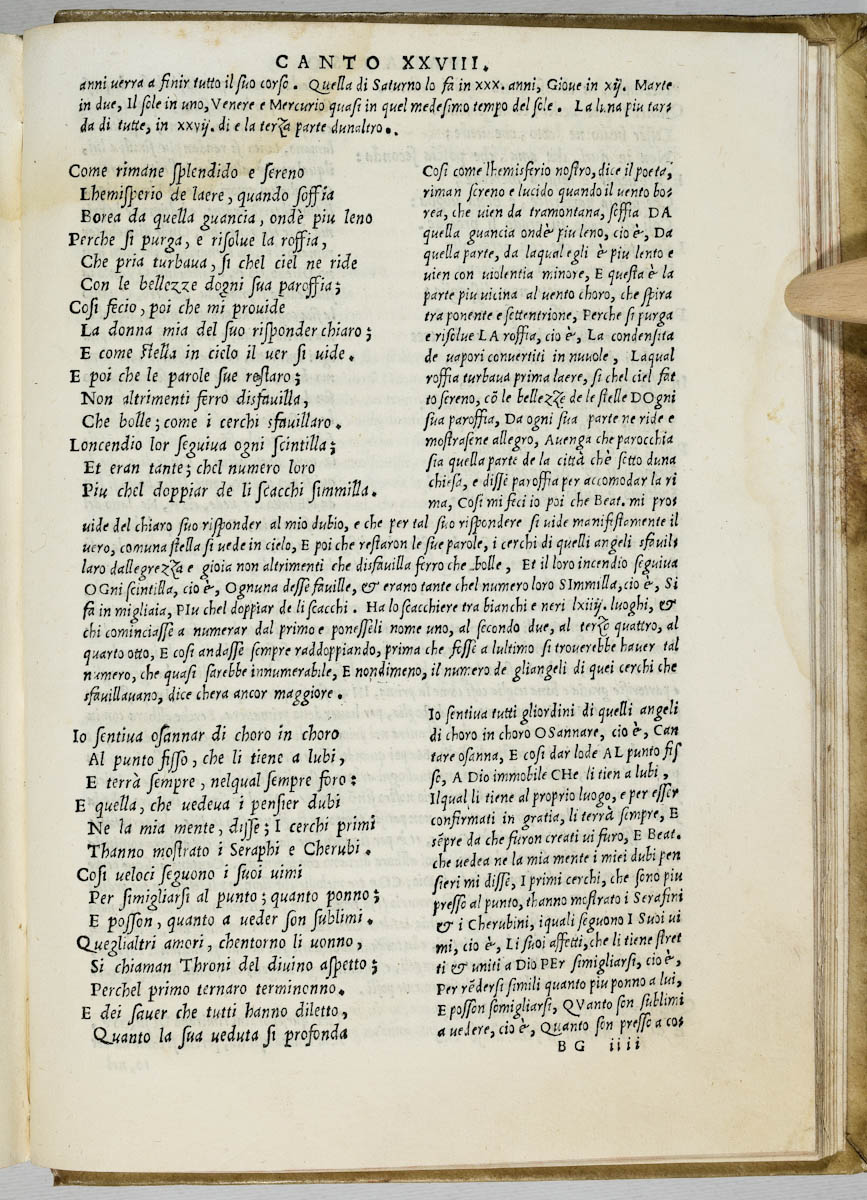 CANTO XXVIII.
anni uerra a finir tutto il suo corso. Quella di Saturno lo fa in XXX. anni, Gioue in xij. Marte
in due, Il sole in uno, Venere e Mercurio quasi in quel medesimo tempo del sole. La luna piu tar-
da di tutte, in XXVij. di e la terza parte dunaltro.
Come rimane splendido e sereno
Lhemisperio de laere, quando soffia
Borea da quella guancia, ondè piu leno
Perche si purga, e risolue la roffia,
Che pria turbaua, si chel ciel ne ride
Con le bellezze dogni sua paroffia;
Cosi fecio, poi che mi prouide
La donna mia del suo risponder chiaro;
E come stella in cielo il uer si uide.
E poi che le parole sue restaro;
Non altrimenti ferro disfauilla,
Che bolle; come i cerchi sfauillaro.
Loncendio lor seguiua ogni scintilla;
Et eran tante; chel numero loro
Piu chel doppiar de li scacchi simmilla.
Cosi come lhemisferio nostro, dice il poeta,
riman sereno e lucido quando il uento bo-
rea, che uien da tramontana, soffia DA
quella guancia ondè piu leno, cio è, Da
quella parte, da laqual egli è piu lento e
uien con uiolentia minore, E questa è la
parte piu uicina al uento choro, che spira
tra ponente e settentrione, Perche si purga
e risolue LA roffia, cio è, La condensita
de uapori conuertiti in nuuole, Laqual
roffia turbaua prima laere, si chel ciel fat
to sereno, cō le bellezze de le stelle DOgni
sua paroffia, Da ogni sua parte ne ride e
mostrasene allegro, Auenga che parocchia
sia quella parte de la città chè sotto duna
chiesa, e disse paroffia per accomodar la ri
ma, Cosi mi feci io poi che Beat. mi pro-
uide del chiaro suo risponder al mio dubio, e che per tal suo rispondere si uide manifestamente il
uero, comuna stella si uede in cielo, E poi che restaron le sue parole, i cerchi di quelli angeli sfauil-
laro dallegrezza e gioia non altrimenti che disfauilla ferro che bolle, Et il loro incendio seguiua
OGni scintilla, cio è, Ognuna desse fauille, & erano tante chel numero loro SImmilla, cio è, Si
fa in migliaia, PIu chel doppiar de li scacchi. Ha lo scacchiere tra bianchi e neri lxiiij. luoghi, &
chi cominciasse a numerar dal primo e ponesseli nome uno, al secondo due, al terzo quattro, al
quarto otto, E cosi andasse sempre raddoppiando, prima che fosse a lultimo si trouerebbe hauer tal
numero, che quasi sarebbe innumerabile, E nondimeno, il numero de gliangeli di quei cerchi che
sfauillauano, dice chera ancor maggiore.
Io sentiua osannar di choro in choro
Al punto fisso, che li tiene a lubi,
E terrà sempre, nelqual sempre foro:
E quella, che uedeua i pensier dubi
Ne la mia mente, disse; I cerchi primi
Thanno mostrato i Seraphi e Cherubi.
Cosi ueloci seguono i suoi uimi
Per simigliarsi al punto; quanto ponno;
E posson, quanto a ueder son sublimi.
Queglialtri amori, chentorno li uonno,
Si chiaman Throni del diuino aspetto;
Perchel primo ternaro terminonno.
E dei sauer che tutti hanno diletto,
Quanto la sua ueduta si profonda
Io sentiua tutti gliordini di quelli angeli
di choro in choro OSannare, cio è, Can
tare osanna, E cosi dar lode AL punto fis
so, A Dio immobile CHe li tien a lubi,
Ilqual li tiene al proprio luogo, e per esser
confirmati in gratia, li terrà sempre, E
sēpre da che furon creati ui furo, E Beat.
che uedea ne la mia mente i miei dubi pen
sieri mi disse, I primi cerchi, che sono piu
presso al punto, thanno mostrato i Serafini
& i Cherubini, iquali seguono I Suoi ui
mi, cio è, Li suoi affetti, che li tiene stret
ti & uniti a Dio PEr simigliarsi, cio è,
Per rēdersi simili quanto piu ponno a lui,
E posson somigliarsi, QVanto son sublimi
a uedere, cio è, Quanto son presso a co-
BG iiii